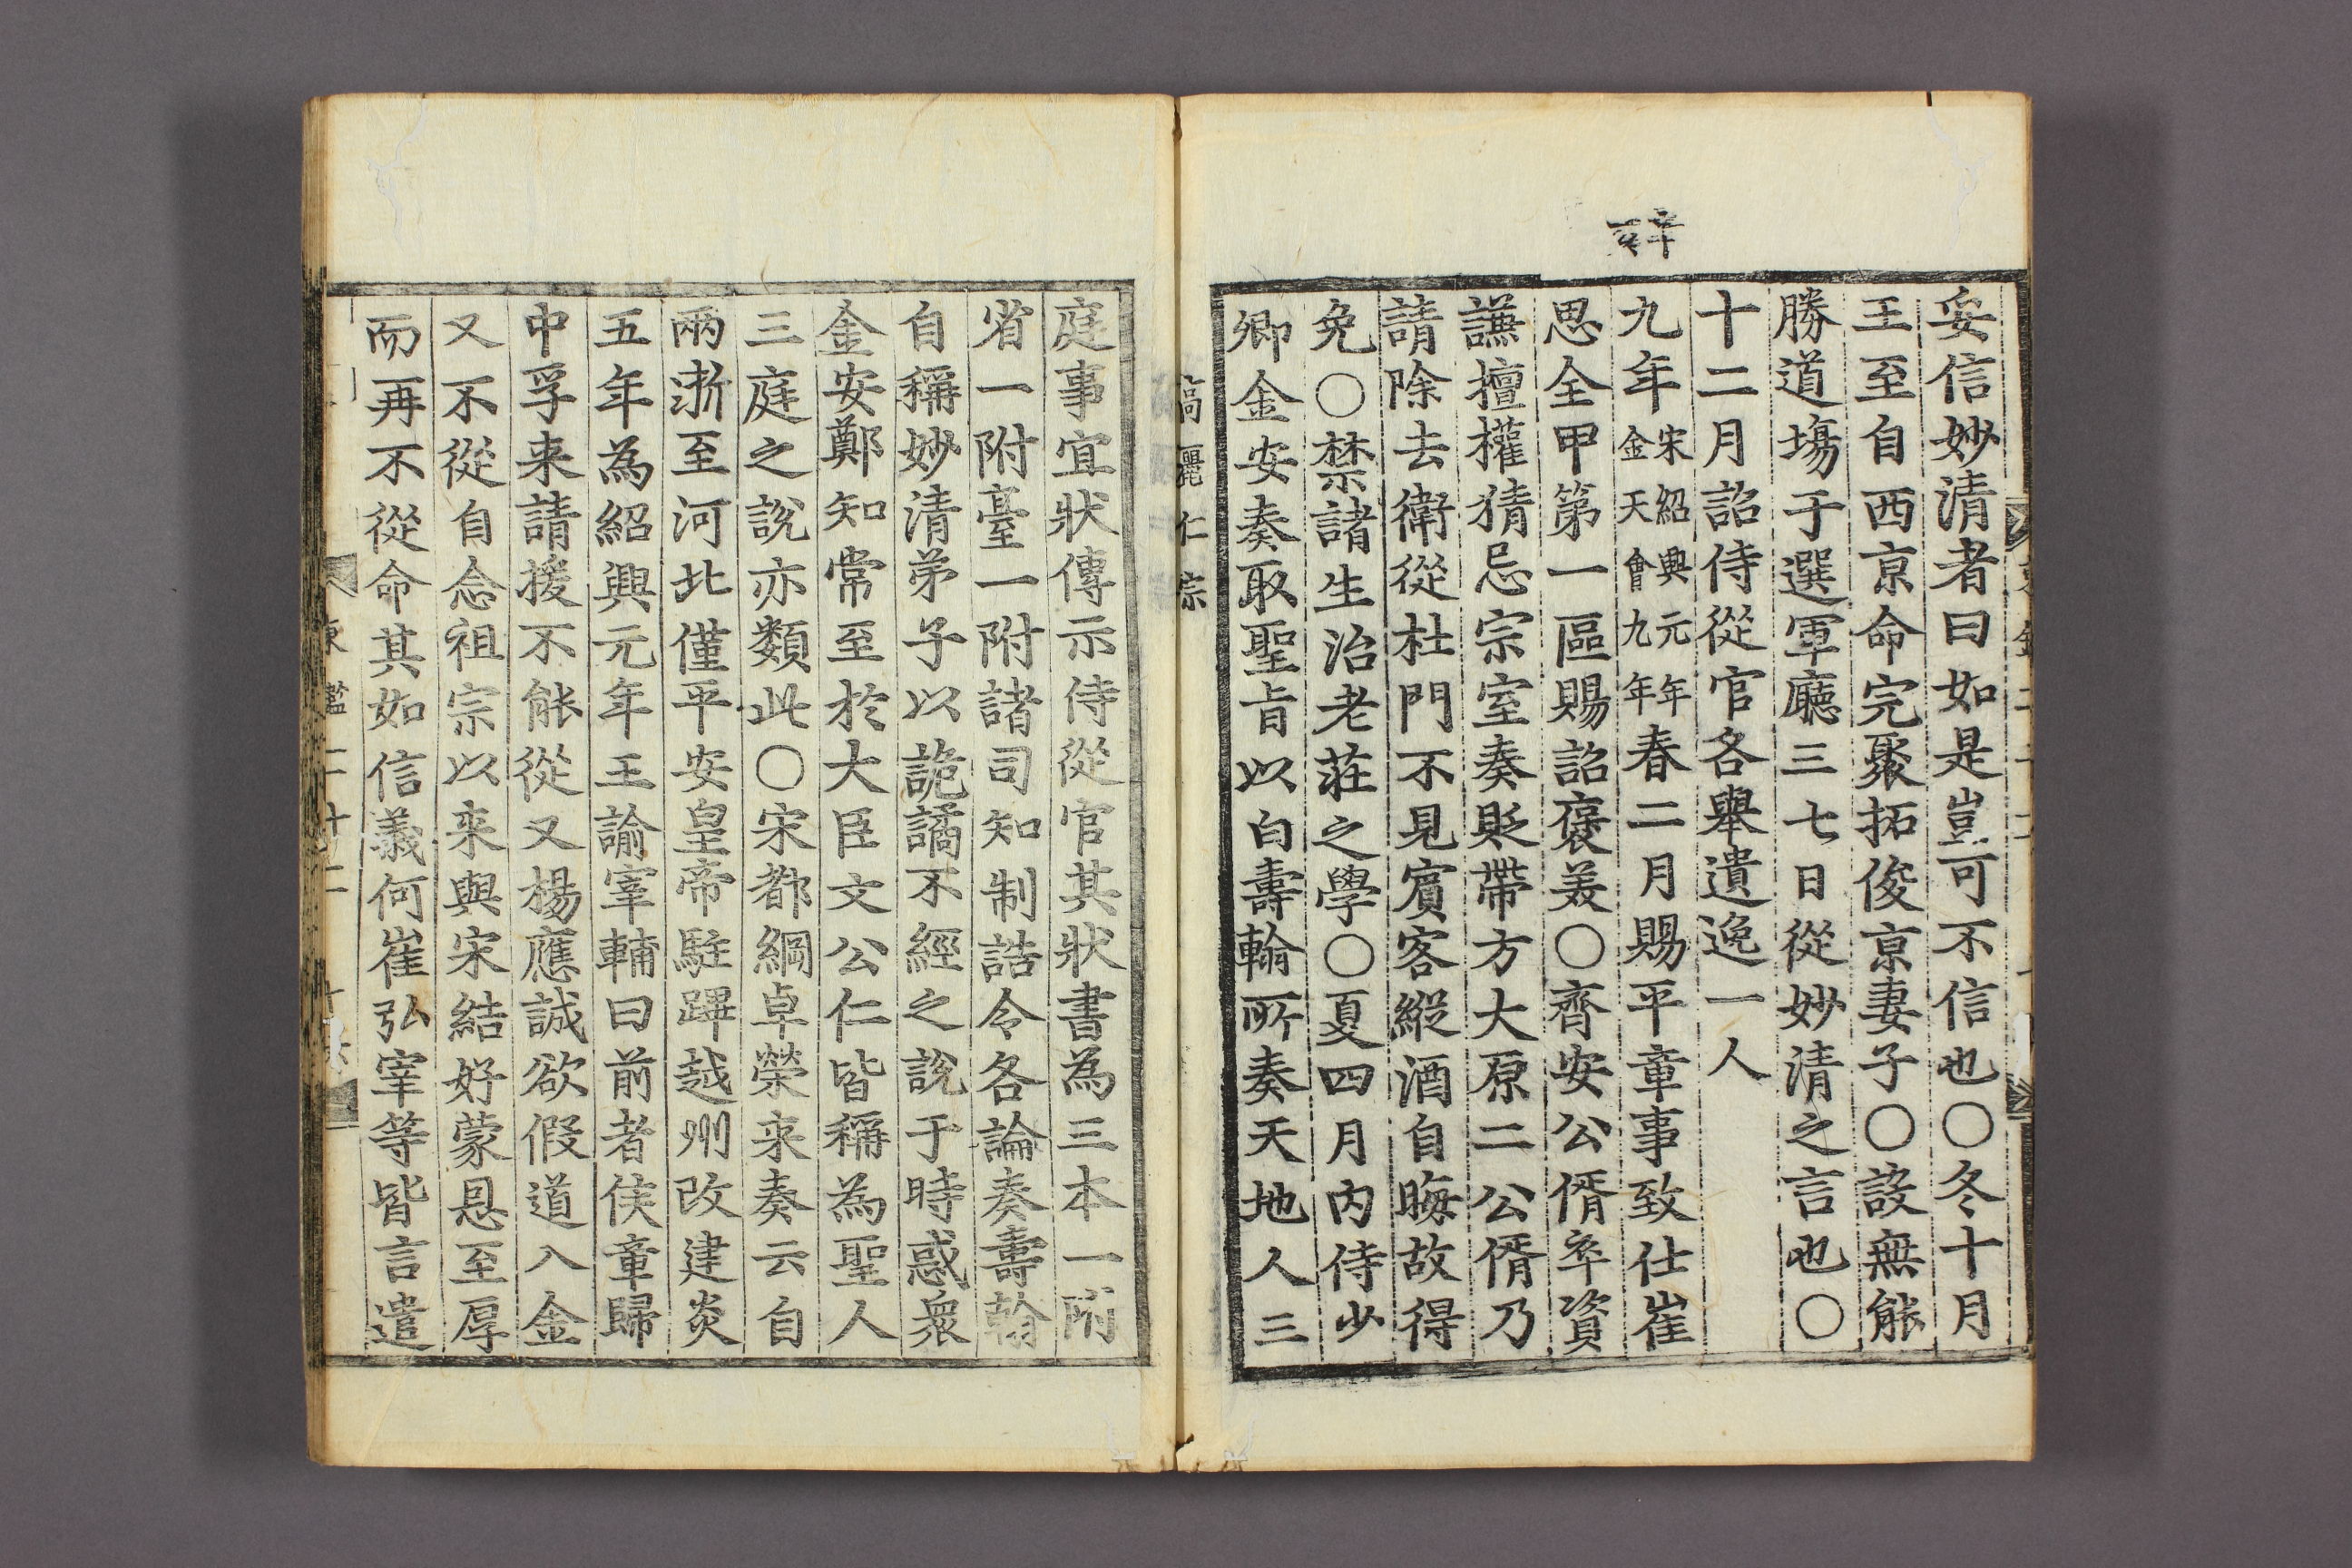 辛亥
妥信妙清者曰如是豈可不信也○冬十月
王至自西京命完聚拓俊京妻子○設無能
勝道場于選軍廳三七日從妙清之言也○
十二月詔侍從官各舉遺逸一人
九年宋紹興元年金天會九年春二月賜平章事致仕崔
思全甲第一區賜詔褒美○齊安公偦卒資
謙擅權猜忌宗室奏貶帶方大原二公偦乃
請除去衛從杜門不見賓客縱酒自晦故得
免○禁諸生治老莊之學○夏四月內侍少
卿金安奏取聖旨以白壽翰所奏天地人三
高麗仁宗
庭事宜狀傳示侍從官其狀書為三本一附
省一附臺一附諸司知制誥令各論奏壽翰
自稱妙清弟子以詭譎不經之說于時惑衆
金安鄭知常至於大臣文公仁皆稱為聖人
三庭之說亦類此○宋都綱卓榮来奏云自
兩浙至河北僅平安皇帝駐蹕越州改建炎
五年為紹興元年王諭宰輔曰前者侯章歸
中孚来請援不能從又楊應誠欲假道入金
又不從自念祖宗以来與宋結好蒙恩至厚
而再不從命其如信義何崔弘宰等皆言遣
東鑑二十二